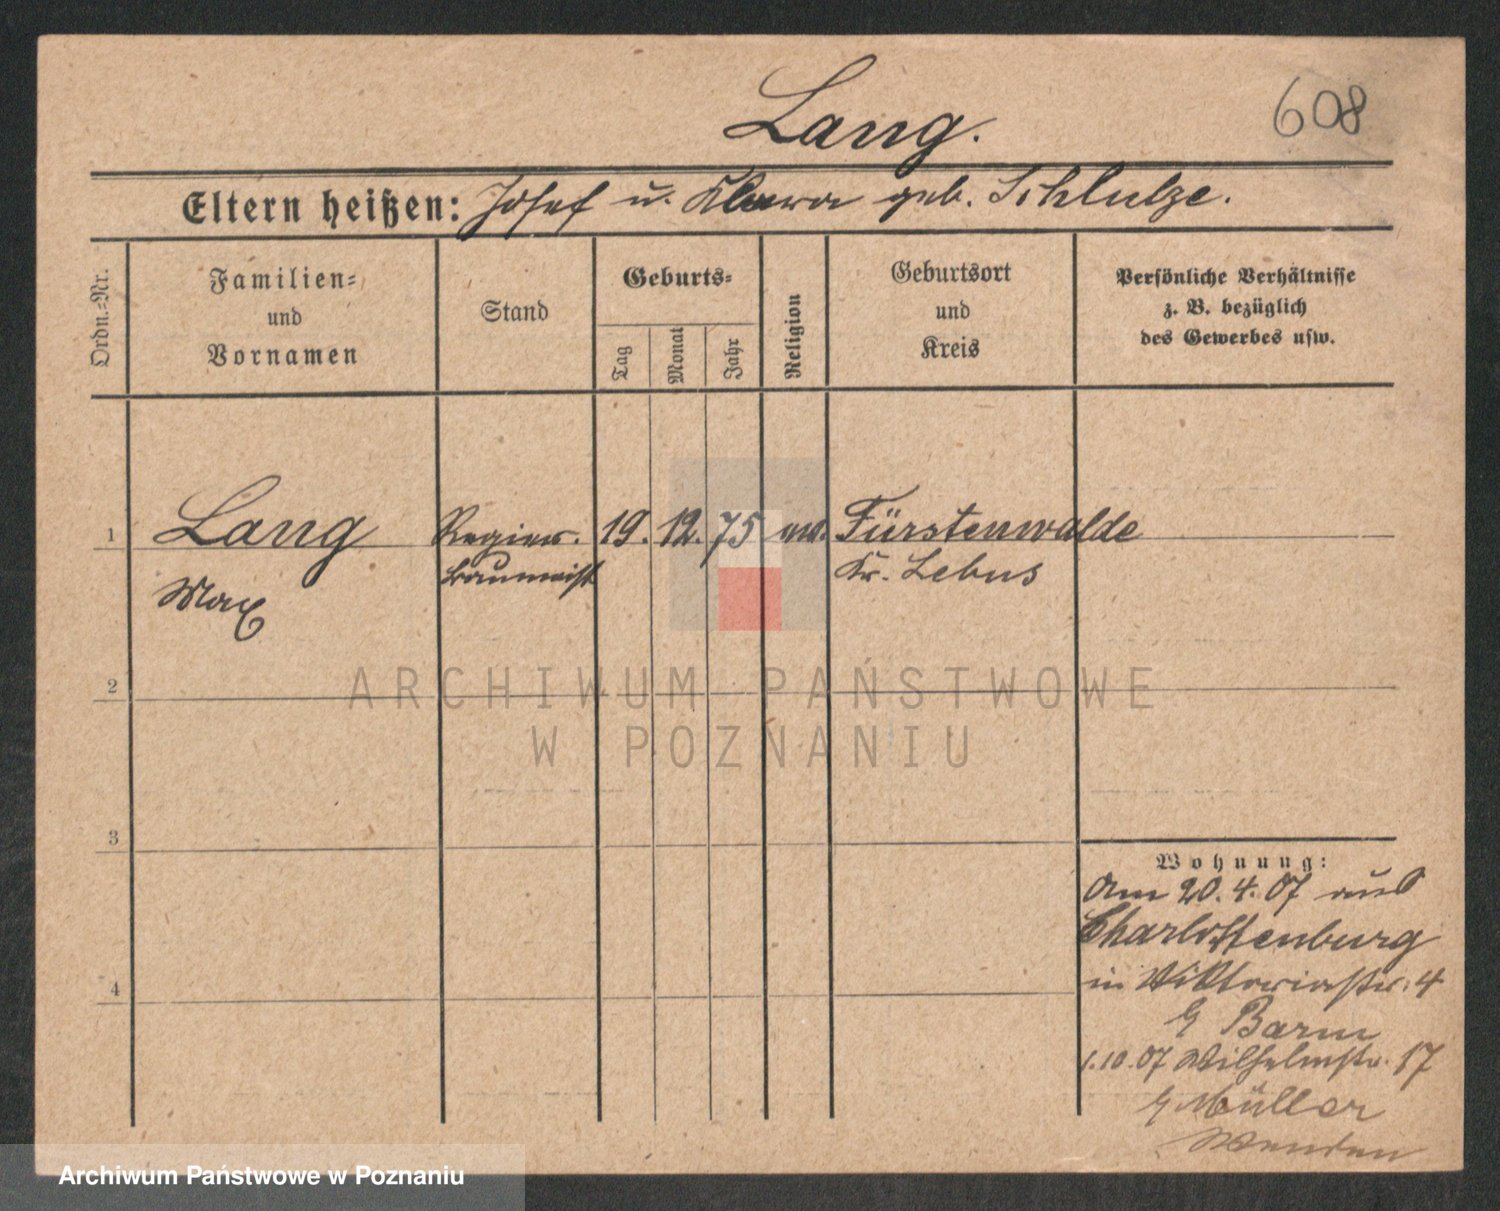 608
Lang.
Eltern heißen: Josef u. Klara geb. Schlulze.
Ordn.-Nr.
Familien-
und
Vornamen
Stand
Geburts-
Tag
Monat
Jahr
Religion
Geburtsort
und
Kreis
Persönliche Verhältnisse
z. B. bezüglich
des Gewerbes usw.
1 Lang Regier. 19. 12. 75 ev. Fürstenwalde
Max Baumeist Kr. Lebus
2
3
4
Wohnung:
Am 20.4.07 aus
Charlottenburg
in Viktoriastr. 4
Barm
1.10.07 Wilhelmstr. 17
Müller
Wenden
ARCHIWUM PAŃSTWOWE
W POZNANIU
Archiwum Państwowe w Poznaniu